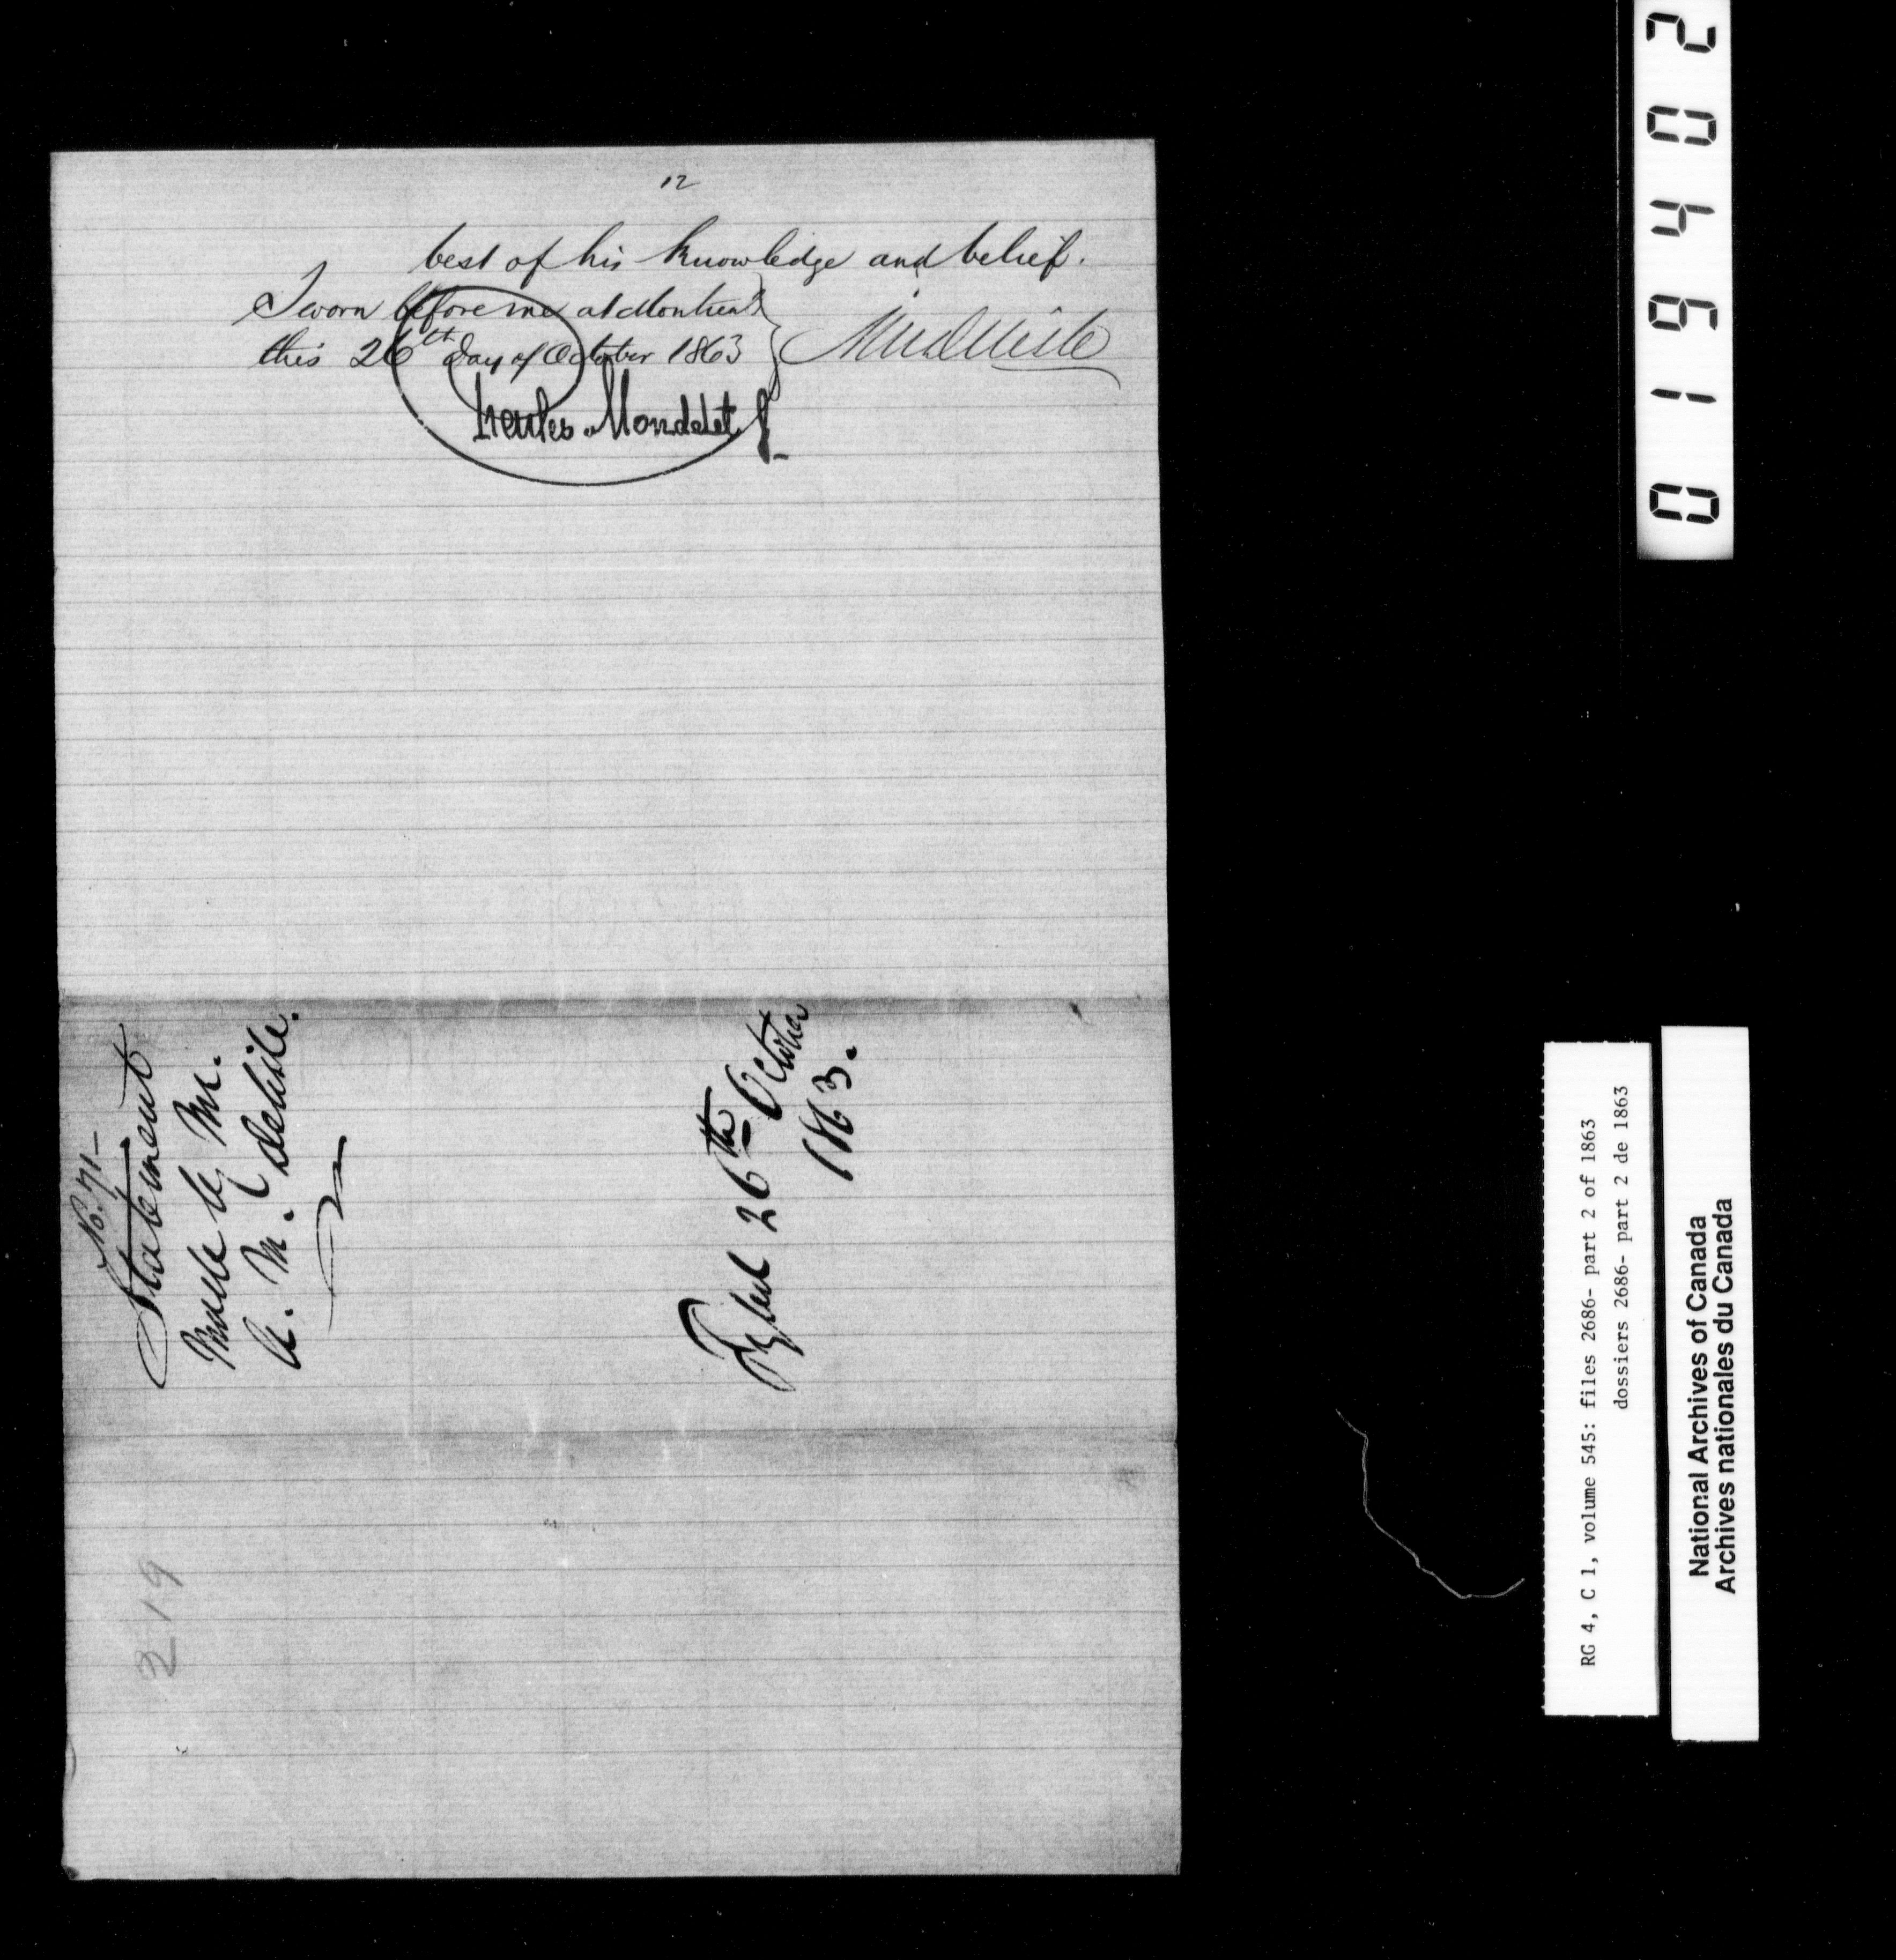 12
best of his knowledge and belief.
Sworn before me at Montreal
this 26th Day of October 1863
Charles Mondelet J.
AMDelisle
No. 71-
Statement
made by Mr.
A. M. Delisle.
26th October
1863.
219
019402
RG 4, C 1, volume 545: files 2686- part 2 of 1863
dossiers 2686- part 2 de 1863
National Archives of Canada
Archives nationales du Canada